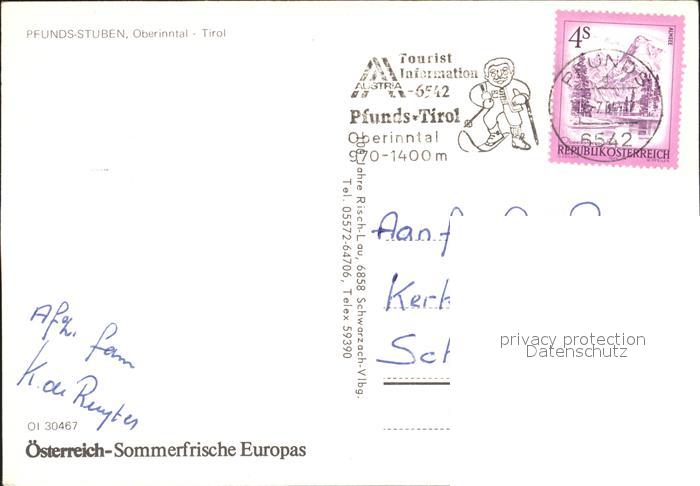 PFUNDS-STUBEN, Oberinntal - Tirol
Tourist
Information
AUSTRIA -6542
Pfunds-Tirol
Oberinntal
970-1400m
4S
ALMSEE
PFUNDS
6542
REPUBLIK ÖSTERREICH
100 Jahre Risch-Lau, 6858 Schwarzach-Vlbg.
Tel. 05572-64706, Telex 59390
Aan f
Kerk
Sch
privacy protection
Datenschutz
Afz. fam
K. de Ruyter
OI 30467
Österreich-Sommerfrische Europas